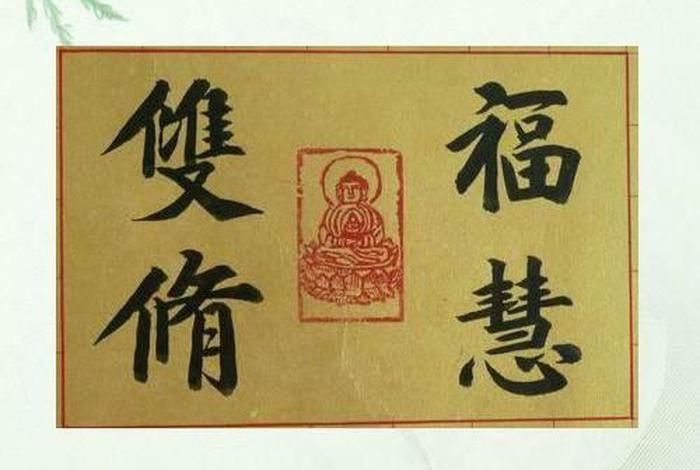 福慧
雙脩